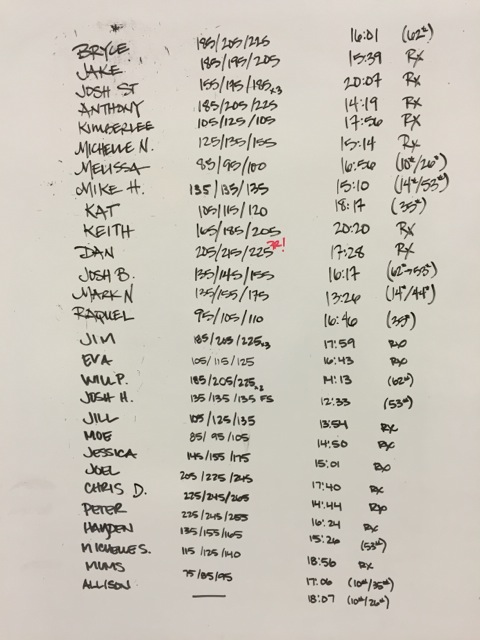 *
BRYCE 185/205/225 16:01 (62#)
JAKE 185/195/205 15:39 Rx
JOSH ST 155/175/185x3 20:07 Rx
ANTHONY 185/205/225 14:19 Rx
KIMBERLEE 105/125/105 17:56 Rx
MICHELLE N. 125/135/155 15:14 Rx
MELISSA 85/95/100 16:56 (10#/26#)
MIKE H. 135/135/135 15:10 (14#/53#)
KAT 105/115/120 18:17 (35#)
KEITH 165/185/205 20:20 Rx
DAN 205/215/225 PR! 17:28 Rx
JOSH B. 135/145/155 16:17 (62#→53#)
MARK N 135/155/175 13:26 (14#/44#)
RAQUEL 95/105/110 16:46 (35#)
JIM 185/205/225x3 17:59 Rx
EVA 105/115/125 16:43 Rx
WILL P. 185/205/225x2 14:13 (62#)
JOSH H. 135/135/135 FS 12:33 (53#)
JILL 105/125/135 13:54 Rx
MOE 85/95/105 14:50 Rx
JESSICA 145/155/175 15:01 Rx
JOEL 205/225/245 17:40 Rx
CHRIS D. 225/245/265 14:44 Rx
PETER 225/245/255 16:24 Rx
HAYDEN 135/155/165 15:26 (53#)
MICHELLE S. 115/125/140 18:56 Rx
MUMS 75/85/95 17:06 (10#/35#)
ALLISON — 18:07 (10#/26#)